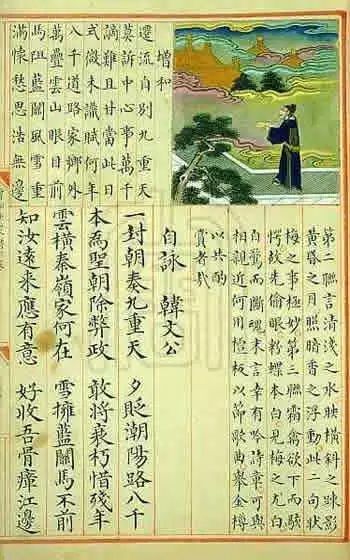 第二聯言清淺之水映橫斜之疎影
黃昏之月照暗香之浮動此二句狀
梅之事極妙第三聯霜禽欲下而駭
愕故先偷眼粉蝶本白見梅之尤白
自驚而斷魂末言幸有吟詩章可與
相親近何用檀板以節歌曲舉金樽
以共酌
賞者哉
自詠 韓文公
一封朝奏九重天 夕貶潮陽路八千
本為聖朝除弊政 敢將衰朽惜殘年
雲橫秦嶺家何在 雪擁藍關馬不前
知汝遠來應有意 好收吾骨瘴江邊
增和
遷流自別九重天
莫訴中心事萬千
謫難且甘當此日
式微未識賦何年
八千道路家鄉外
萬疊雲山眼目前
馬阻藍關風雪重
滿懷愁思浩無邊